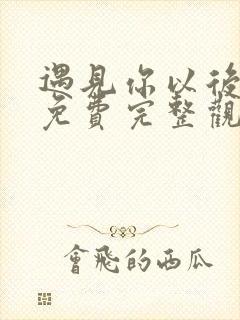 遇見你以後
免費完整觀
會飛的西瓜